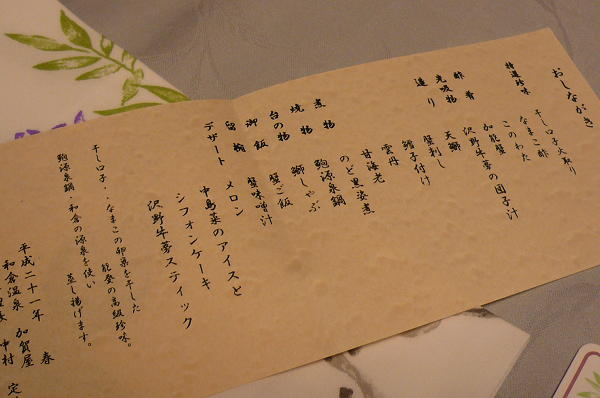 おしながき
特選珍味 干し口子火取り
なまこ酢
このわた
酢肴 加能蟹
先吸物 沢野牛蒡の団子汁
造り 天鰤
蟹刺し
鱈子付け
雲丹
甘海老
煮物 のど黒姿煮
焼物 鮑源泉鍋
台の物 鰤しゃぶ
御飯 蟹ご飯
留椀 蟹味噌汁
デザート メロン
中島菜のアイスと
シフォンケーキ
沢野牛蒡スティック
干し口子・・なまこの卵巣を干した
能登の高級珍味。
鮑源泉鍋・和倉の源泉を使い
蒸し揚げます。
平成二十一年 春
和倉温泉 加賀屋
中村 定